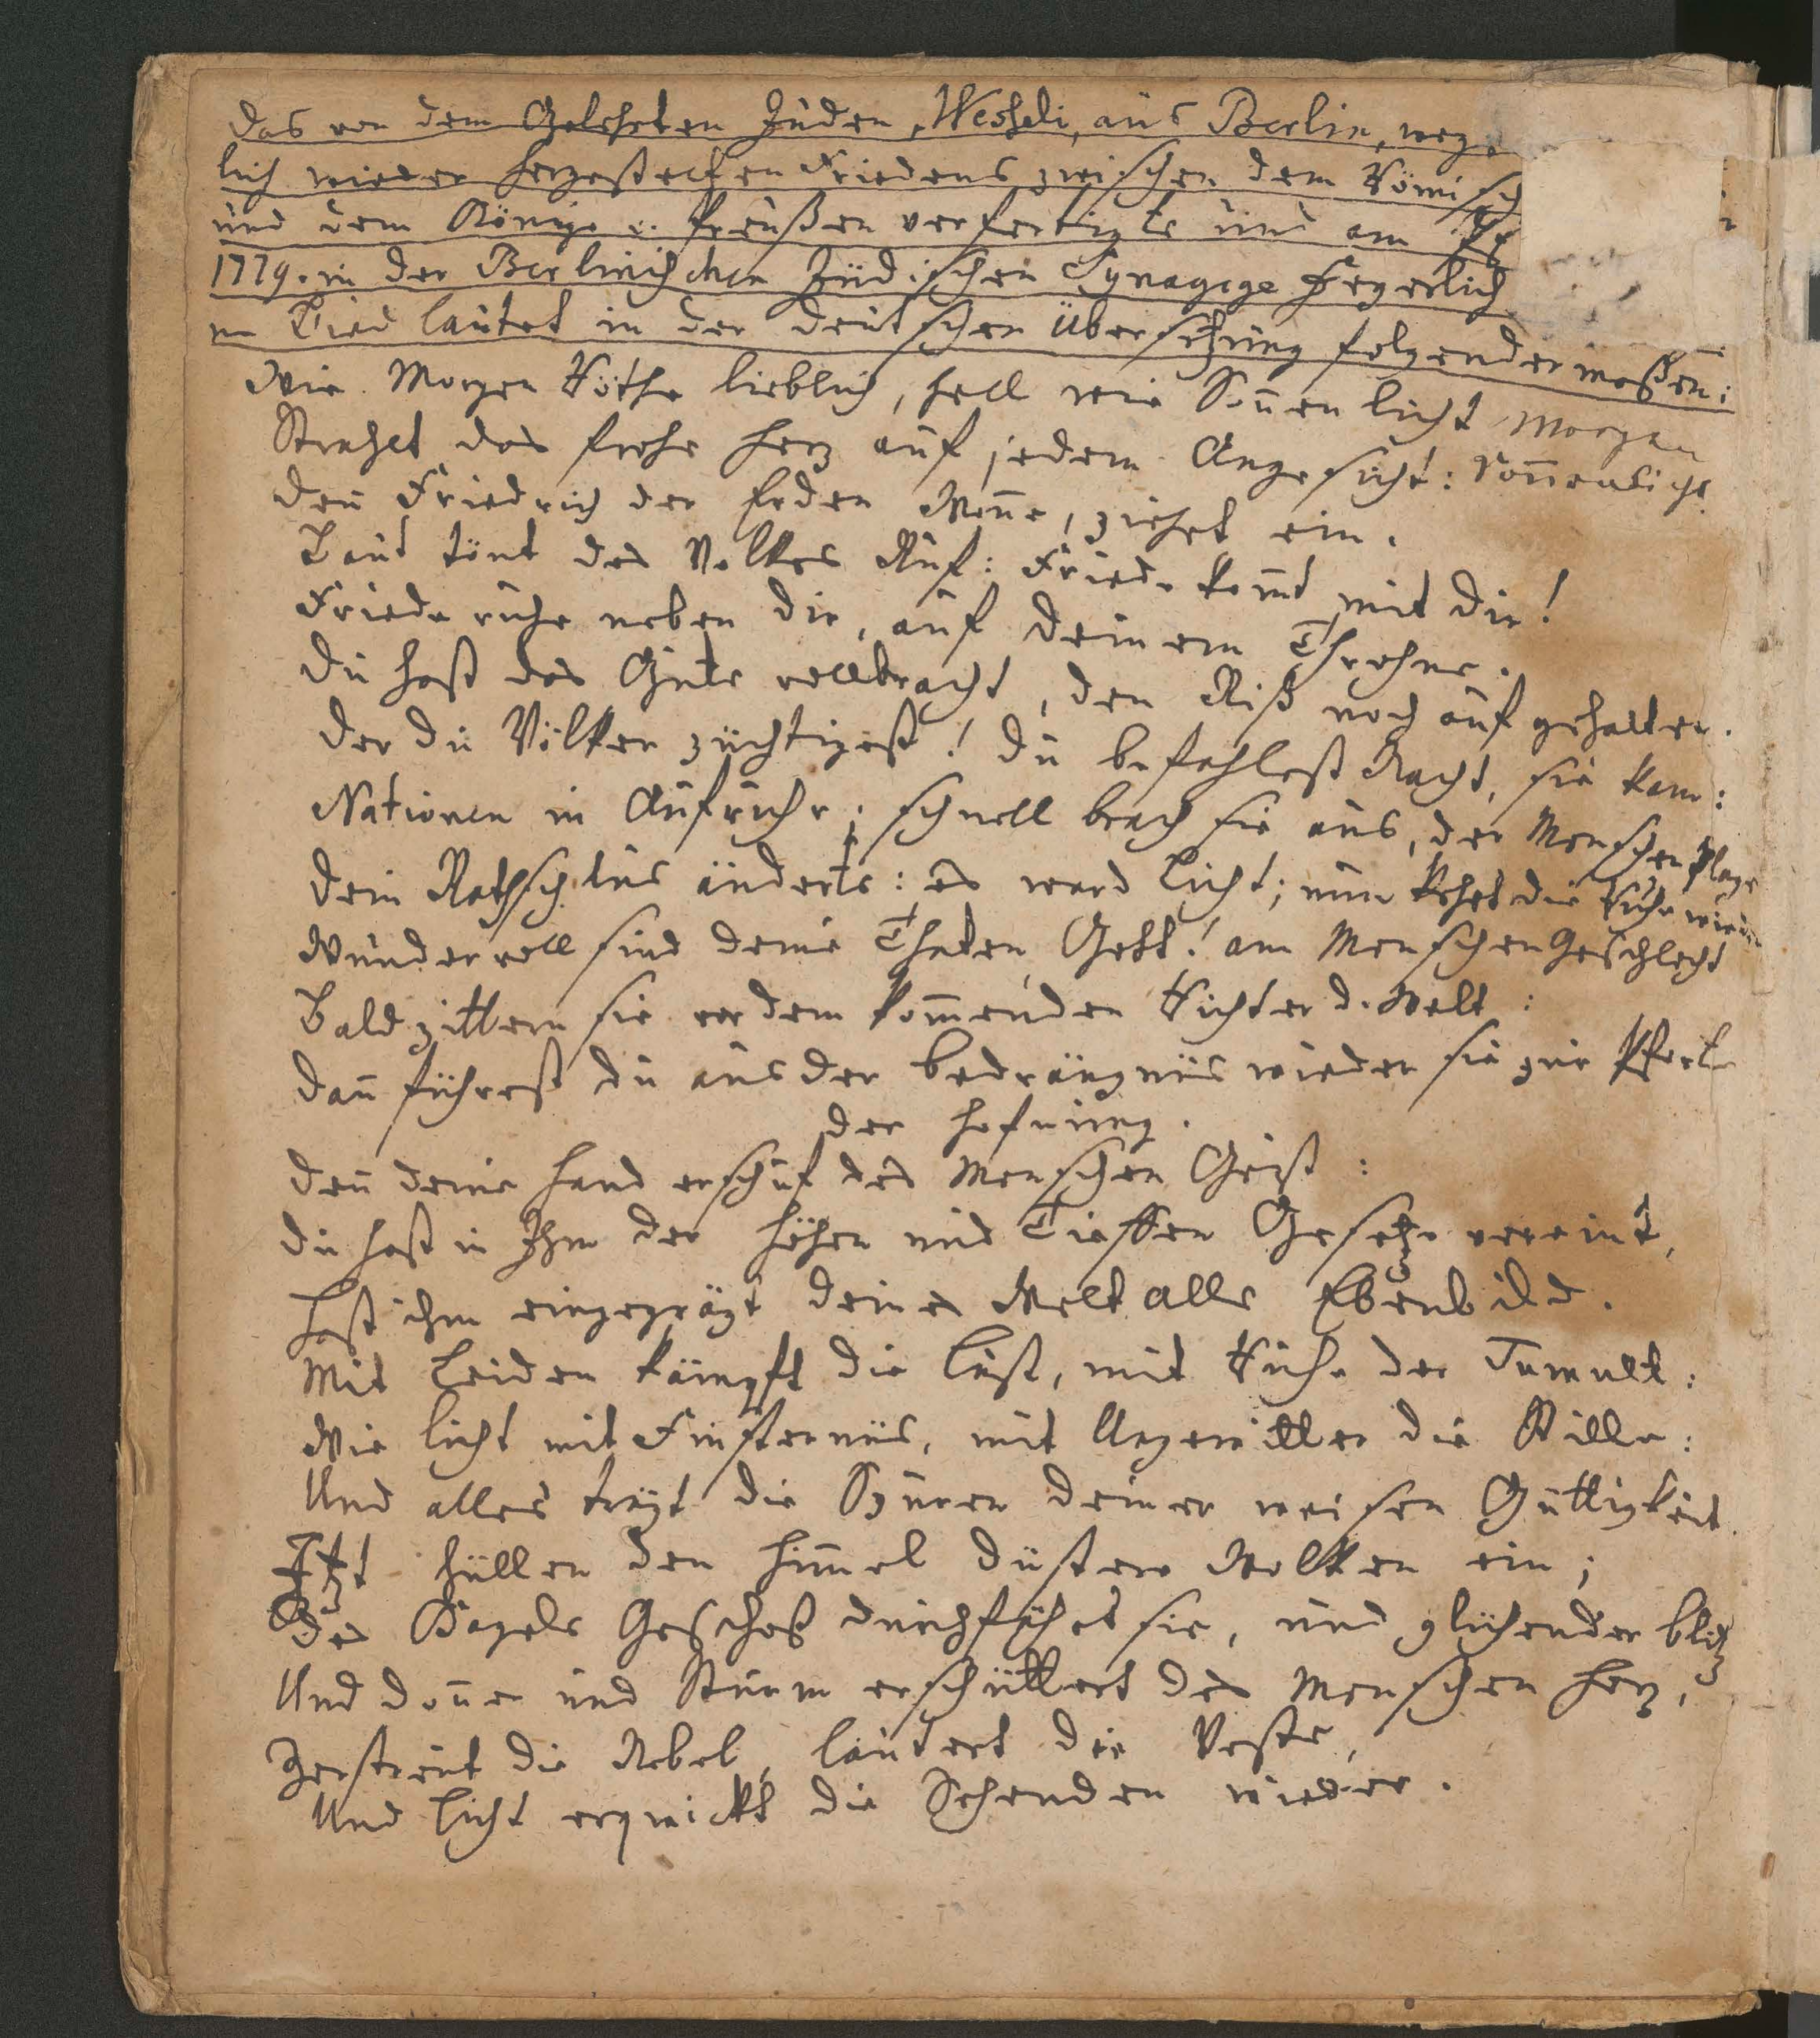 Das von dem Gelehrten Juden, Wesseli, aus Berlin, weg
lich wieder hergestelten Friedens zwischen dem Römisch
und dem Könige v. Preußen verfertigte und am
1779. in der Berlinischen Jüdischen Synagoge Feyerlich
ne Lied lautet in der deutschen Übersetzung folgendermaßen:
Wie Morgen Röthe lieblich, hell wie Sonnen licht Morgen
Strahlet das frohe Herz auf jedem Angesicht: Sonnenlicht
Denn Friedrich der Erden Wonne, ziehet ein.
Laut tönt des Volkes Ruf: Friede komt mit dir!
Friede ruhe neben dir, auf deinem Throhne.
Du hast das Gute vollbracht, den Riß noch auf gehalten.
Der du Völker züchtigest! du befahlest Nacht, sie kam:
Nationen in Aufruhr; schnell brach sie aus, der Menschen Plage
Dein Rathschlus änderts: es ward Licht; nun kehrt die Ruhe wieder
Wundervoll sind deine Thaten, Gott! am Menschen Geschlecht
Bald zittern sie vor dem kommenden Richter d. Welt:
Dann führest du aus der Bedrängnüs wieder sie zur Pforte
der Hofnung.
Denn deine Hand erschuf des Menschen Geist:
Du hast in Ihm der Höhen und Tieffen Gesetze vereint,
Hast ihm eingeprägt deines Welt alls Ebenbild.
Mit Leiden kämpft die Lust, mit Ruhe der Tumult:
Wie licht mit Finsternüs, mit Ungewitter die Stille:
Und alles trägt die Spuren deiner weisen Güttigkeit.
Itzt hüllen den Himmel düstere Wolken ein;
Des Hagels Geschoß durchfährt sie, und glühender Blitz
Und Donner und Sturm erschüttert des Menschen Herz,
Zerstreut die Nebel, läutert die Veste,
Und Licht erquickt die Sehenden wieder.